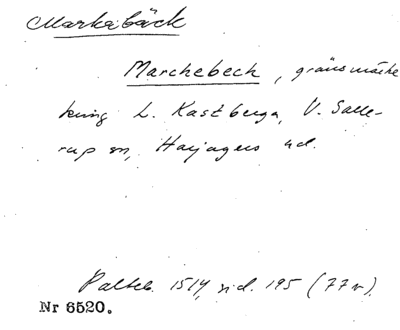 Markabäck
Marchebeck, gränsmärke
kring L. Kastberga, V. Salle-
rup sn, Harjagers hd.
Palteb. 1514, sid. 195 (77v).
Nr 6520.